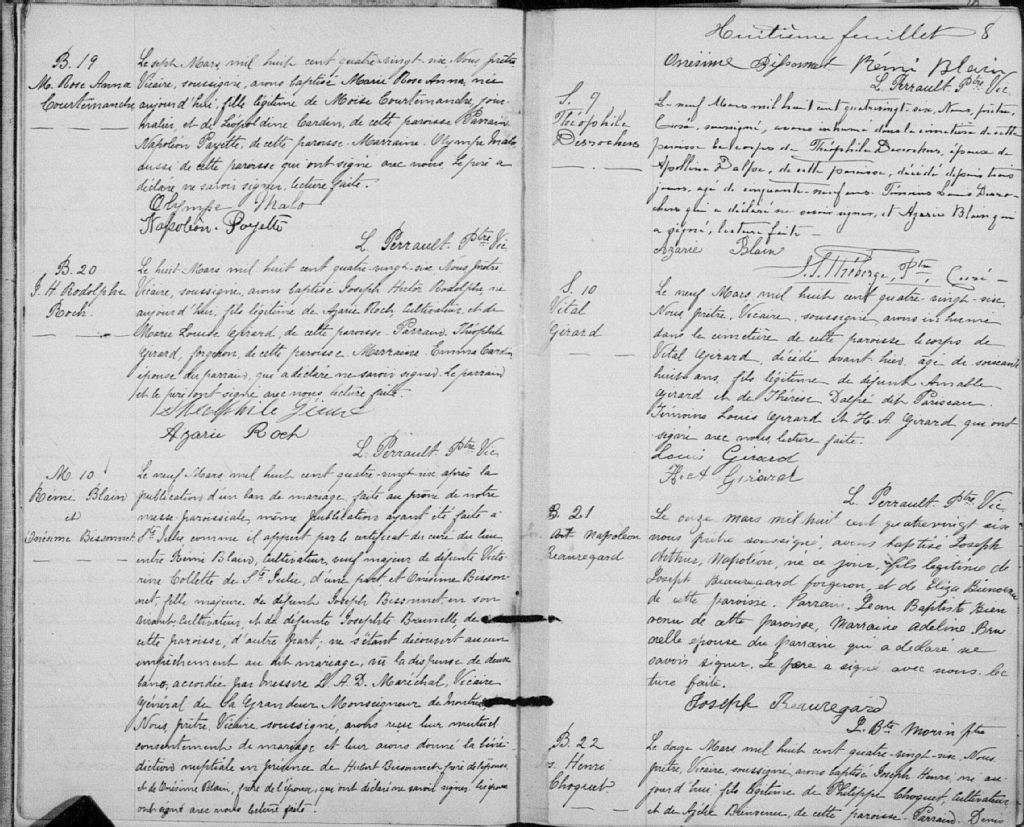 B. 19
M. Rose Anna
Courtemanche
Le sept Mars, mil huit cent quatre-vingt-six Nous prêtre
Vicaire, soussigné, avons baptisé Marie Rose Anne, née
aujourd'hui, fille légitime de Moise Courtemanche, jour-
nalier, et de Léopoldine Cardin, de cette paroisse Parrain
Napoléon Payette, de cette paroisse. Marraine Olympe Malo
aussi de cette paroisse qui ont signé avec nous. Le père a
déclaré ne savoir signer, lecture faite.
Olympe Malo
Napoléon Payette
L. Perrault Ptre Vic
B. 20
J. H. Rodolphe
Roch.
Le huit Mars, mil huit cent quatre-vingt-six Nous prêtre
Vicaire, soussigné, avons baptisé Joseph Hector Rodolphe, né
aujourd'hui, fils légitime de Azarie Roch, Cultivateur, et de
Marie Louise Girard, de cette paroisse. Parrain, Théophile
Girard, forgeron, de cette paroisse. Marraine Emma Cardin
épouse du parrain, qui a déclaré ne savoir signer. Le parrain
et le père ont signé avec nous, lecture faite.
Théophile Girard
Azarie Roch
L. Perrault Ptre Vic
M. 10
Rémi Blain
et
Onésime Bissonnet
Le neuf Mars mil huit cent quatre vingt six après la
publication d'un ban de mariage, faite au prône de notre
messe paroissiale, même publication ayant été faite à
Ste Julie comme il appert par le certificat du curé du lieu
entre Rémi Blain, cultivateur, veuf majeur de défunte Victo
rine Collette de Ste Julie, d'une part et Onésime Bisson-
net, fille majeure de défunt Joseph Bissonnet, en son
vivant, Cultivateur, et de défunte Josephte Brunelle, de
cette paroisse, d'autre part; ne s'étant découvert aucun
empêchement au dit mariage, vû la dispense de deux
bans, accordée par Messire L. A. D. Maréchal, Vicaire
Général de Sa Grandeur Monseigneur de Montréal
Nous, prêtre, Vicaire soussigné, avons reçu leur mutuel
consentement de mariage et leur avons donné la béné-
diction nuptiale en présence de Hubert Bissonnet père de l'épouse
et de Onésime Blain, père de l'époux, qui ont déclaré ne savoir signer. Les époux
ont signé avec nous lecture faite.
Huitième feuillet 8
Onésime Bissonnet Rémi Blain
L. Perrault Ptre Vic
S. 9
Théophile
Desrochers
Le neuf Mars mil huit cent quatre vingt six, Nous, prêtre,
Curé, soussigné, avons inhumé dans le cimetière de cette
paroisse le corps de Théophile Desrochers, époux de
Apolline Dalpé, de cette paroisse, décédé depuis trois
jours, âgé de cinquante-neuf ans. Témoins Louis Desro-
chers qui a déclaré ne savoir signer, et Azarie Blain qui
a signé, lecture faite -
Azarie Blain
Théberge, Ptre, Curé -
S. 10
Vital
Girard
Le neuf Mars, mil huit cent quatre-vingt-six,
Nous, prêtre, Vicaire, soussigné avons inhumé
dans le cimetière de cette paroisse le corps de
Vital Girard, décédé avant hier, âgé de soixante
huit ans, fils légitime de défunt Amable
Girard et de Thérèse Dalpé dit Pariseau.
Témoins Louis Girard et H. A Girard, qui ont
signé avec nous, lecture faite.
Louis Girard
H. A Girard
L. Perrault Ptre Vic,
B. 21
Art. Napoléon
Beauregard
Le onze mars mil huit cent quatrevingt six
nous prêtre soussigné, avons baptisé Joseph
Arthur, Napoléon, né ce jour, fils legitime de
Joseph Beauregard forgeron, et de Eliza Bienvenu
de cette paroisse. Parrain, Jean Baptiste Bien
venu de cette paroisse, Marraine Adeline Bru
nelle epouse du parrain qui a declaré ne
savoir signer. Le père a signé avec nous. lec
ture faite.
Joseph Beauregard
J. Bte Morin ptre
B. 22
J. Henri
Choquet
Le douze Mars, mil huit cent quatre-vingt-six. Nous
prêtre, Vicaire, soussigné, avons baptisé Joseph Henri, né au-
jourd'hui, fils légitime de Philippe Choquet, Cultivateur
et de Agilée Bienvenu, de cette paroisse. Parrain Denis